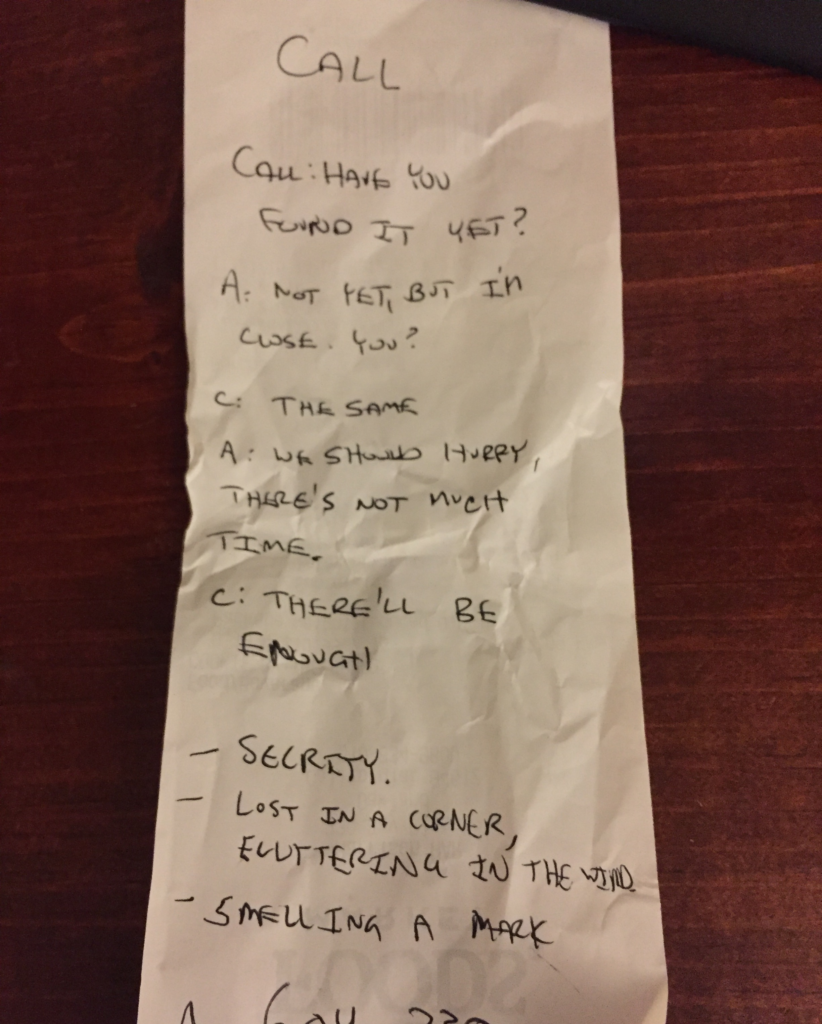 CALL
CALL: HAVE YOU
FOUND IT YET?
A: NOT YET, BUT I'M
CLOSE. YOU?
C: THE SAME
A: WE SHOULD HURRY,
THERE'S NOT MUCH
TIME.
C: THERE'LL BE
ENOUGH
- SECRITY.
- LOST IN A CORNER,
FLUTTERING IN THE WIND.
- SMELLING A MARK